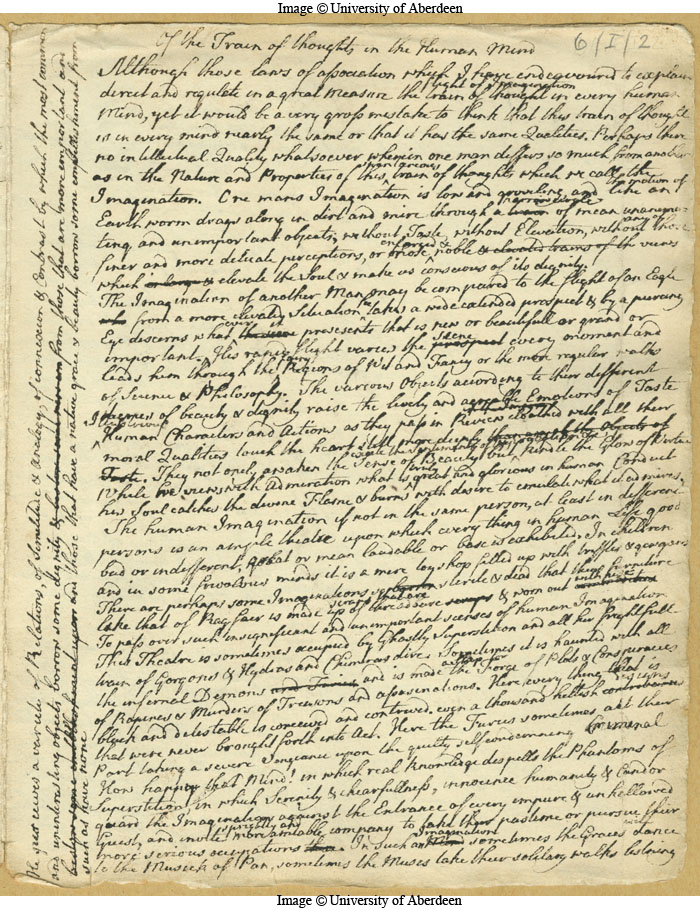 Image © University of Aberdeen
6/I/2
Of the Train of thought in the Human Mind
Although those laws of association which I have endeavoured to explain
direct and regulate in a great measure the train of thought in every human
flight of Imagination
Mind, yet it would be a very gross mistake to think that this train of thought
is in every mind nearly the same or that it has the same Qualities. Perhaps there
no intellectual Quality whatsoever wherein one man differs so much from another
as in the Nature and Properties of this train of thought which we call the
Imagination. One mans Imagination is low and groveling, and like an
spontaneous
narrow circle
the motion of
Earth worm drags along in dirt and mire through a of mean unanima-
ting and unimportant objects, without Taste, without Elevation, without those
any of
finer and more delicate perceptions, or those noble & elevated trains of the views
enlarged &
which or large & elevate the Soul & make us conscious of its dignity
The Imagination of another Man may be compared to the flight of an Eagle
who from a more elevated Situation takes a wide extended prospect & by a piercing
Eye discerns what ever presents that is new or beautifull or grand or
important. His rapid flight varies the prospect every moment and
Scene
leads him through the Regions of Wit and Fancy or the more regular walks
of Science & Philosophy. The various Objects according to their different
degrees of beauty & dignity raise the lively and Emotions of Taste
Human Characters and Actions as they pass in Review clothed with all their
moral Qualities touch the heart still more deeply
Taste. They not only awaken the Sense of Beauty, but kindle the Flame of Virtue
While he views with Admiration what is great and glorious in human Conduct
truly
his Soul catches the divine Flame & burns with desire to emulate what it admires
The human Imagination if not in the same person, at least in different
persons is an ample theatre upon which every thing in human Life good
bad or indifferent, great or mean laudable or base is exhibited. In children
and in some frivolous minds it is a mere toy shop filled up with trifles & gewgaws
There are perhaps some Imaginations so sterile & dead that their furniture
like that of Ragfair is made up of threadbare scraps & worn out
To pass over such insignificant and unimportant scenes of human Imagination
This Theatre is sometimes occupied by Ghastly Superstition and all her frightfull
train of Gorgons & Hydras and Chimeras dire. Sometimes it is haunted with all
the infernal Demons and Furies and is made the Forge of Plots & Conspiracies
of Rapines & Murders of Treasons and assasinations. Here every thing that is
black and detestable is conceived and contrived. even a thousand hellish
designs
that were never brought forth into Act. Here the Furies sometimes act their
Part taking a severe Vengeance upon the guilty self condemning Criminal
How happy that Mind! in which real Knowledge dispells the Phantoms of
Superstition, in which Serenity & chearfullness, innocence humanity & Candor
guard the Imagination against the Entrance of every impure & unhallowed
Guest, and invite more amiable company to take their pastime or pursue their
more serious occupations In such an Imagination sometimes the Graces dance
to the Musick of Pan, sometimes the Muses take their solitary walks listning
He perceives a variety of Relations, of Similitude & Analogy, of connexion & Contrast by which the most common
and uninteresting objects borrow some dignity from those that are more important and
those that have a native grace & beauty borrow some embellishment from
such as have none.
Image © University of Aberdeen